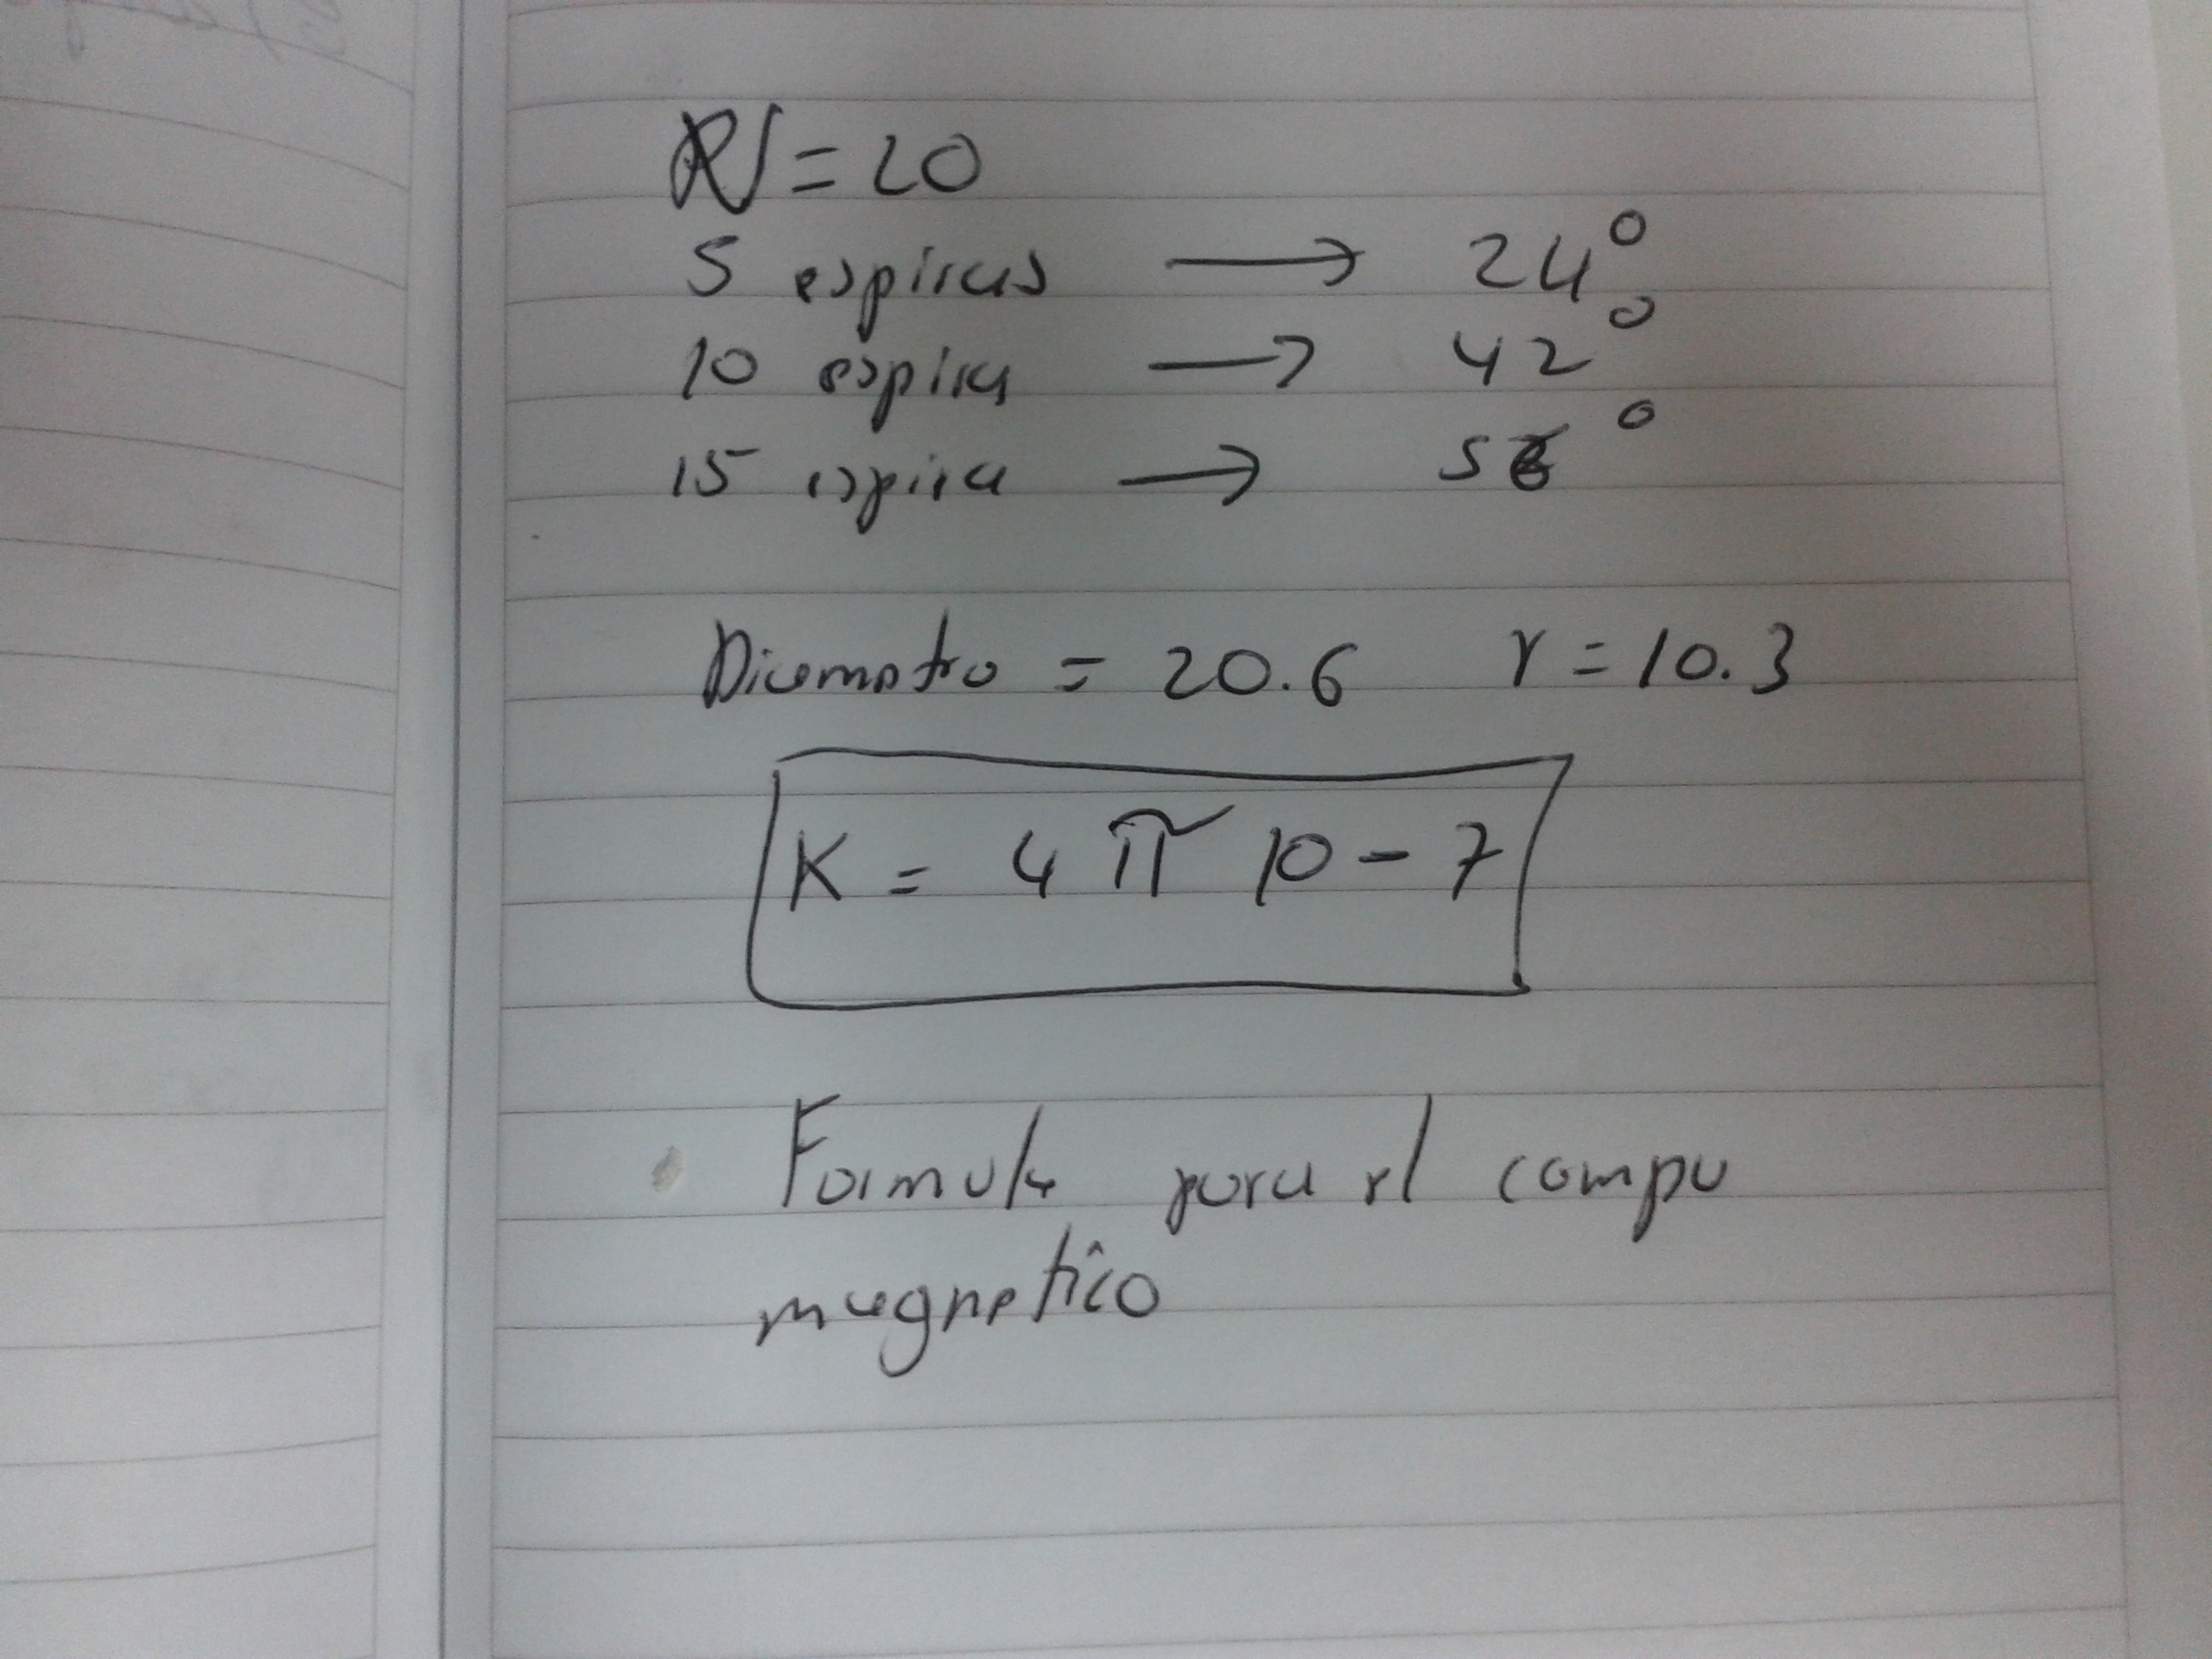 N = 20
5 espiras → 24°
10 espira → 42°
15 espira → 5°
Diametro = 20.6 r = 10.3
K = 4 π 10 - 7
Formula para el campo
magnetico